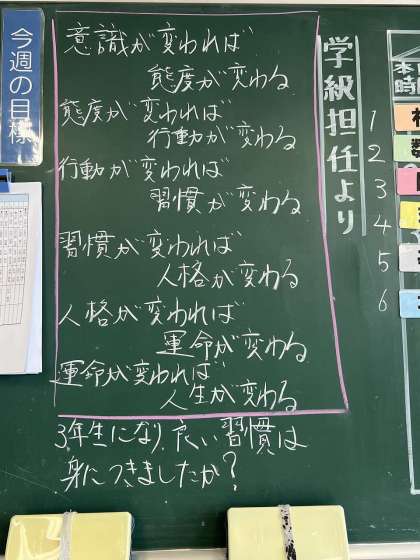 今週の目標
意識が変われば
態度が変わる
態度が変われば
行動が変わる
行動が変われば
習慣が変わる
習慣が変われば
人格が変わる
人格が変われば
運命が変わる
運命が変われば
人生が変わる
3年生になり、良い習慣は
身につきましたか？
学級担任より
1
2
3
4
5
6